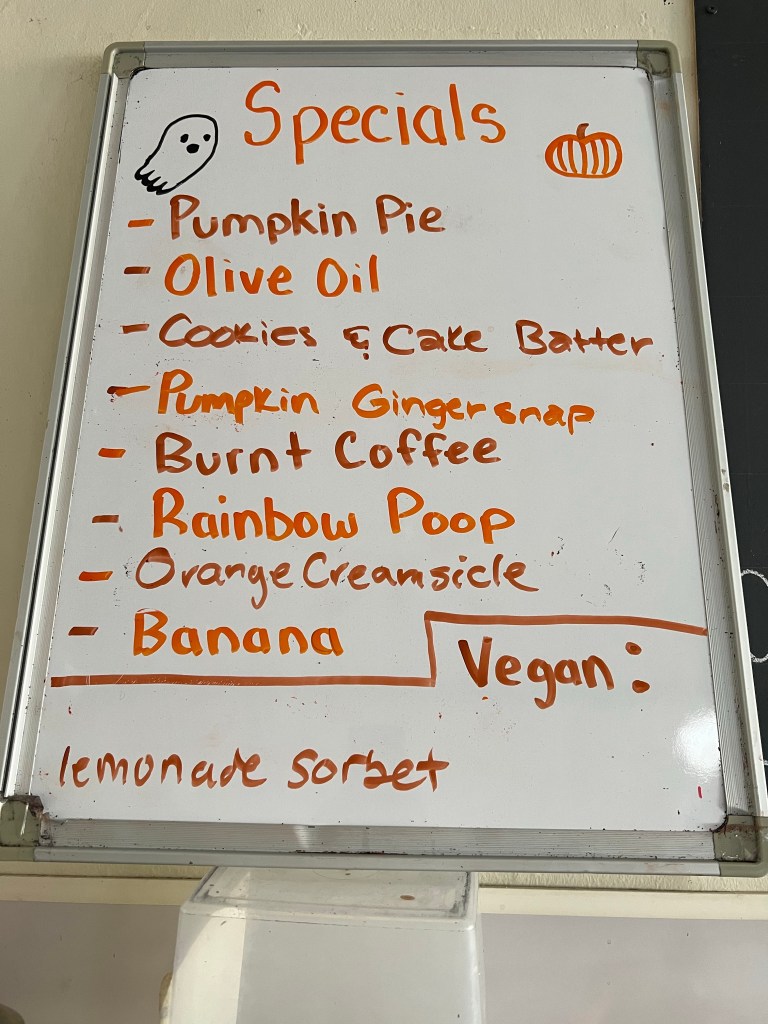 Specials
- Pumpkin Pie
- Olive Oil
- Cookies & Cake Batter
- Pumpkin Gingersnap
- Burnt Coffee
- Rainbow Poop
- Orange Creamsicle
- Banana
Vegan:
lemonade sorbet